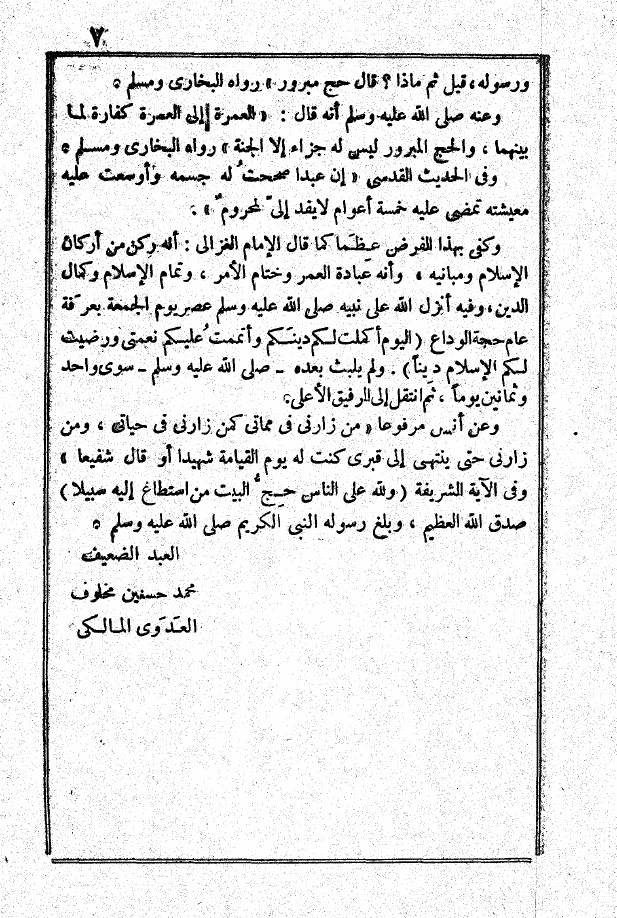 ٧
ورسوله، قيل ثم ماذا ؟ قال حج مبرور » رواه البخارى ومسلم .
وعنه صلى الله عليه وسلم أنه قال : « العمرة إلى العمرة كفارة لما
بينهما ، والحج المبرور ليس له جزاء إلا الجنة » رواه البخارى ومسلم .
وفى الحديث القدسى « إن عبدا صححتُ له جسمه وأوسعت عليه
معيشته تمضى عليه خمسة أعوام لايفد إلىّ لمحروم » .
وكفى بهذا الفرض عِظَما كما قال الإمام الغزالى : أنه ركن من أركان
الإسلام ومبانيه ، وأنه عبادة العمر وختام الأمر ، وتمام الإسلام وكمال
الدين، وفيه أنزل الله على نبيه صلى الله عليه وسلم عصر يوم الجمعة بعرفة
عام حجة الوداع (اليوم أكملت لكم دينكم وأتممتُ عليكم نعمتى ورضيت
لكم الإسلام ديناً) . ولم يلبث بعده - صلى الله عليه وسلم - سوى واحد
وثمانين يوماً ، ثم انتقل إلى الرفيق الأعلى .
وعن أنس مرفوعا « من زارنى فى مماتى كمن زارنى فى حياتى ، ومن
زارنى حتى ينتهى إلى قبرى كنت له يوم القيامة شهيدا أو قال شفيعا »
وفى الآية الشريفة (ولله على الناس حِجُّ البيت من استطاع إليه سبيلا)
صدق الله العظيم ، وبلغ رسوله النبى الكريم صلى الله عليه وسلم .
العبد الضعيف
محمد حسنين مخلوف
العَدَوى المالكى